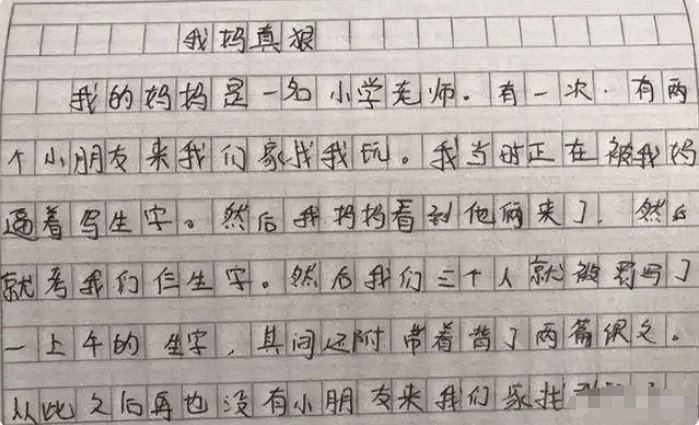 我妈真狠
我的妈妈是一名小学老师。有一次.有两
个小朋友来我们家找我玩。我当时正在被我妈
逼着写生字。然后我妈妈看到他俩来了.然后
就考我们仨生字。然后我们三个人就被罚写了
一上午的生字,其间还附带着背了两篇课文。
从此之后再也没有小朋友来我们家找